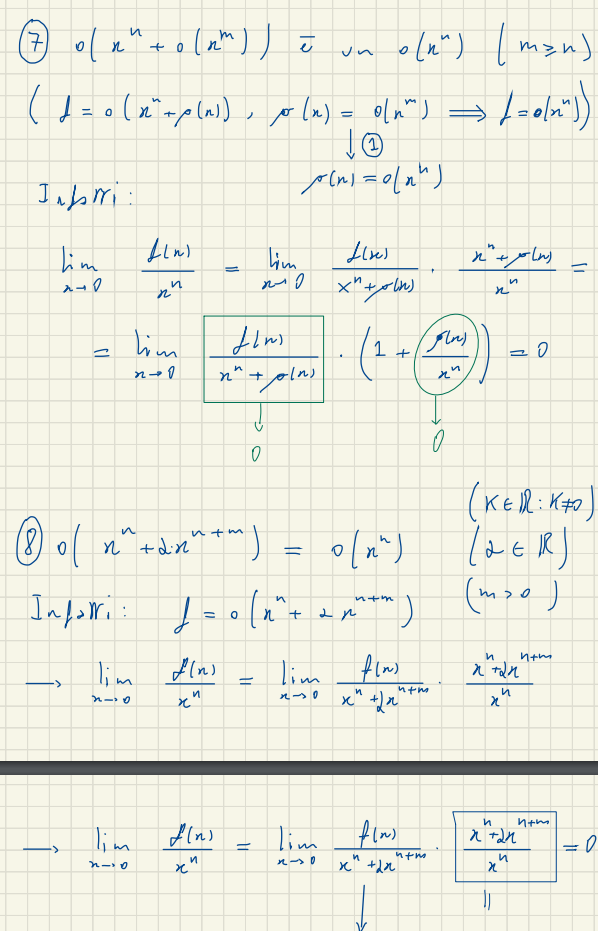 ⑦ o(xⁿ + o(xᵐ)) è un o(xⁿ) (m ≥ n)
(f = o(xⁿ + ρ(x)), ρ(x) = o(xᵐ) ⟹ f = o(xⁿ))
↓ ①
ρ(x) = o(xⁿ)
Infatti:
lim x→0 f(x)/xⁿ = lim x→0 f(x)/(xⁿ + ρ(x)) · (xⁿ + ρ(x))/xⁿ =
= lim x→0 f(x)/(xⁿ + ρ(x)) · (1 + ρ(x)/xⁿ) = 0
↓ ↓
0 0
(K ∈ ℝ : K ≠ 0)
⑧ o(xⁿ + αxⁿ⁺ᵐ) = o(xⁿ) (α ∈ ℝ)
Infatti: f = o(xⁿ + αxⁿ⁺ᵐ) (m > 0)
→ lim x→0 f(x)/xⁿ = lim x→0 f(x)/(xⁿ + αxⁿ⁺ᵐ) · (xⁿ + αxⁿ⁺ᵐ)/xⁿ
→ lim x→0 f(x)/xⁿ = lim x→0 f(x)/(xⁿ + αxⁿ⁺ᵐ) · (xⁿ + αxⁿ⁺ᵐ)/xⁿ = 0
↓ ||